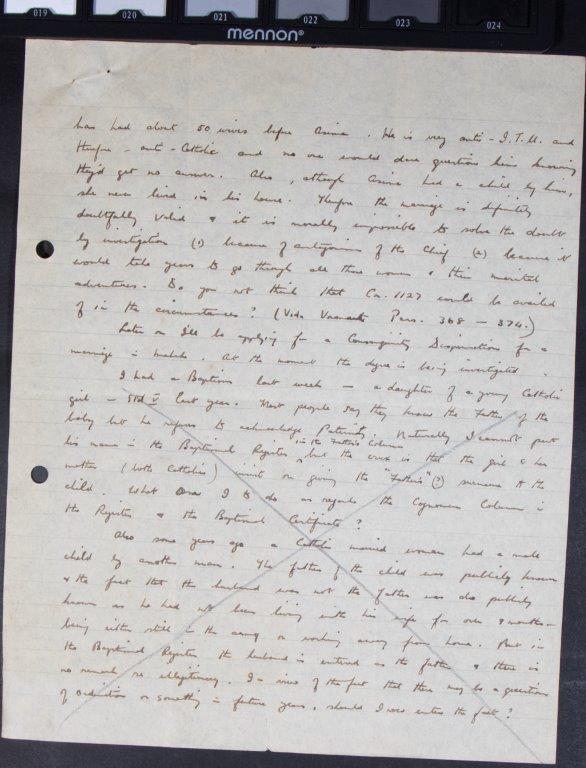 019 020 021 022 023 024
mennon®
has had about 50 wives before Asina. He is very anti-I.T.M. and
therefore - anti-Catholic and no one would dare question him knowing
they'd get no answer. Also, although Asina had a child by him,
she never lived in his house. Therefore the marriage is definitely
doubtfully valid & it is morally impossible to solve the doubt
by investigation (1) because of antagonism of the Chief (2) because it
would take years to go through all those women & their marital
adventures. Do you not think that Can. 1127 could be availed
of in the circumstances? (Vide Vromant Pars. 368 - 374.)
Later on I'll be applying for a Consanguinity Dispensation for a
marriage in . At the moment the degree is being investigated.
I had a Baptism last week - a daughter of a young Catholic
girl - Std V last year. Most people say they know the father of the
baby but he refuses to acknowledge Paternity. Naturally I cannot put
his name in the Baptismal Register in the Father's Column but the crux is that the girl & her
mother (both Catholics) insist on giving the "Father's" (?) surname to the
child. What am I to do as regards the Cognomen Column in
the Register & the Baptismal Certificate?
Also some years ago a Catholic married woman had a male
child by another man. The father of the child was publicly known
& the fact that the husband was not the father was also publicly
known as he had not been living with his wife for over 9 months -
being either still in the army or working away from home. But in
the Baptismal Register the husband is entered as the father & there is
no remark re illegitimacy. In view of the fact that there may be a question
of ordination or something in future years, should I now enter the fact?